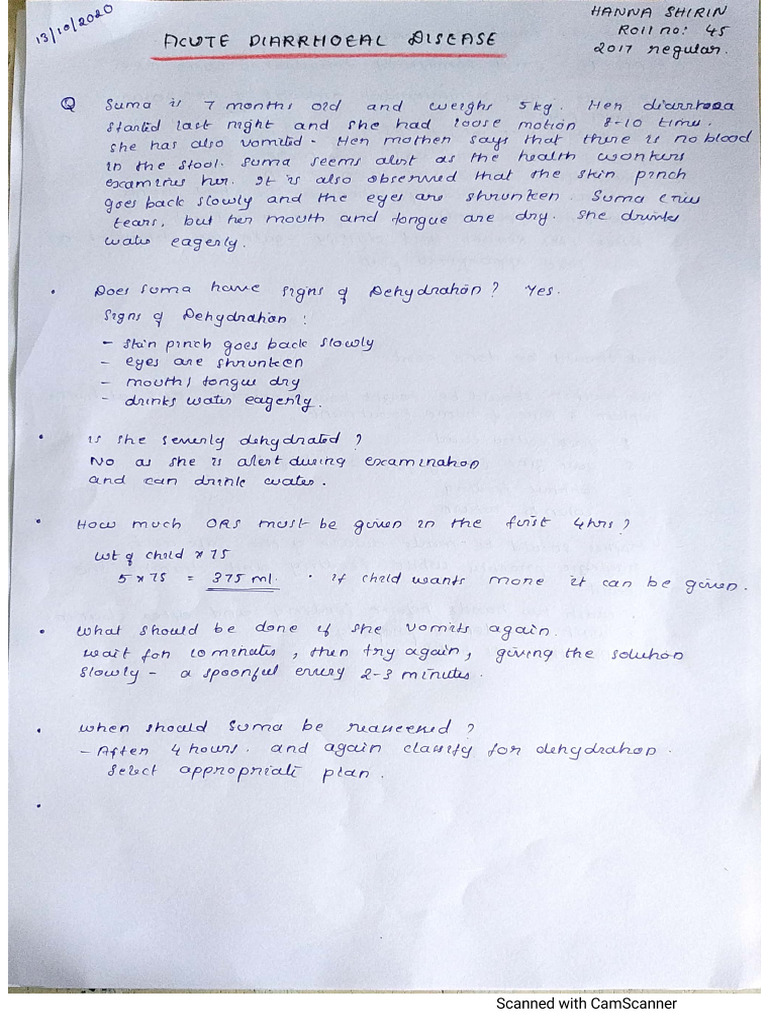 13/10/2020
HANNA SHIRIN
Roll no: 45
2017 regular.
ACUTE DIARRHOEAL DISEASE
Q Suma is 7 months old and weighs 5kg. Her diarrhoea
started last night and she had loose motion 8-10 time.
she has also vomited. Her mother says that there is no blood
in the stool. Suma seems alert as the health workers
examines her. It is also observed that the skin pinch
goes back slowly and the eyes are shrunken. Suma cries
tears, but her mouth and tongue are dry. She drinks
water eagerly.
• Does suma have signs of Dehydration? Yes.
Signs of Dehydration :
- skin pinch goes back slowly
- eyes are shrunken
- mouth/ tongue dry
- drinks water eagerly.
• is she severly dehydrated ?
No as she is alert during examination
and can drink water.
• How much ORS must be given in the first 4hrs?
wt of child × 75
5 × 75 = 375 ml. • if child wants more it can be given.
• What should be done if she vomits again.
wait for 10 minutes, then try again, giving the solution
slowly - a spoonful every 2-3 minutes.
• when should Suma be reassessed ?
- After 4 hours. and again classify for dehydration.
Select appropriate plan.
•
Scanned with CamScanner